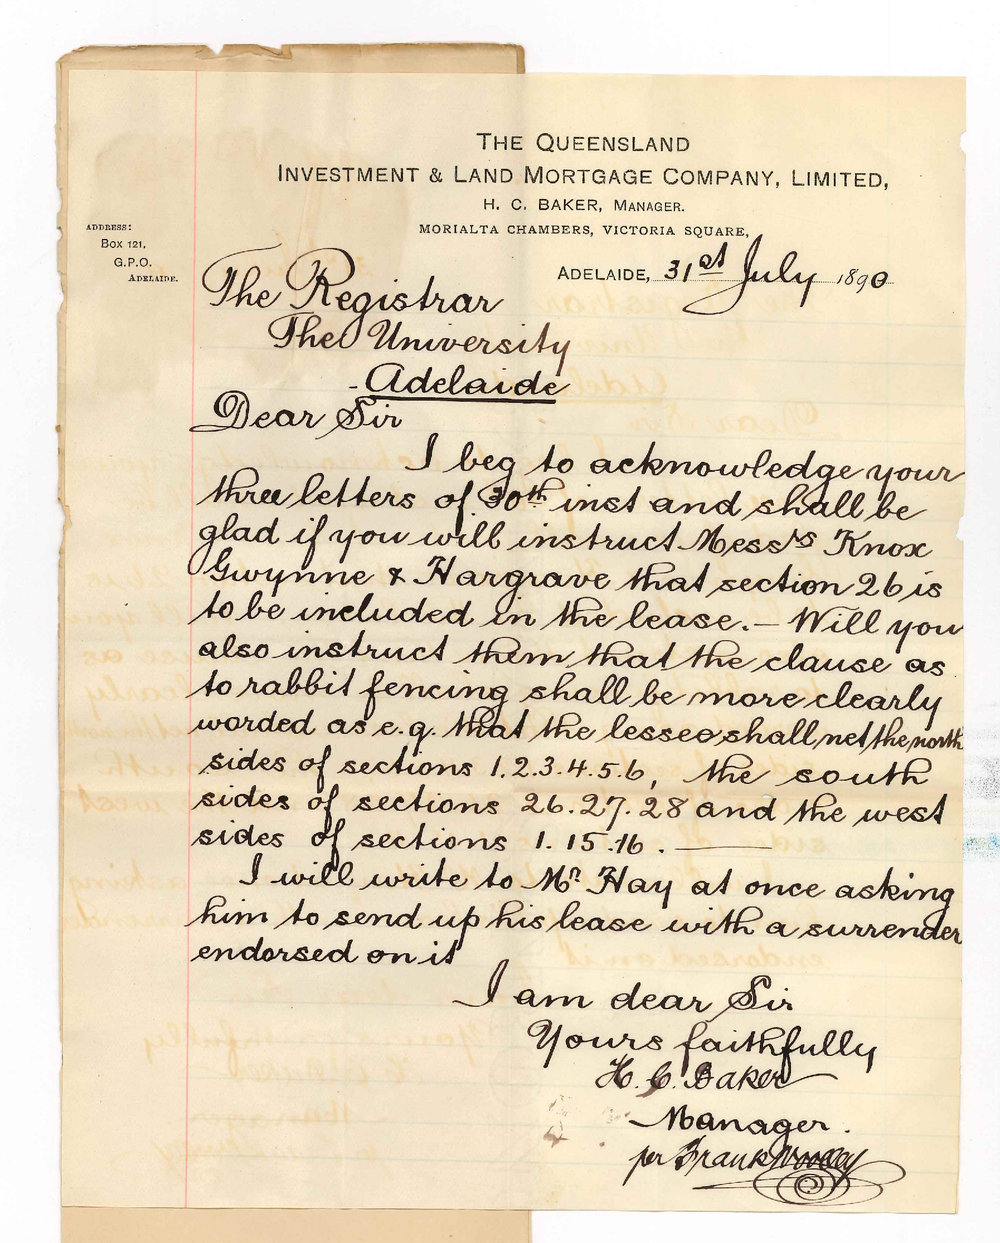 THE QUEENSLAND
INVESTMENT & LAND MORTGAGE COMPANY, LIMITED,
H. C. BAKER, MANAGER.
MORIALTA CHAMBERS, VICTORIA SQUARE,
ADDRESS:
BOX 121,
G.P.O.
ADELAIDE.
ADELAIDE, 31st July 1890
The Registrar
The University
Adelaide
Dear Sir
I beg to acknowledge your
three letters of 30th inst and shall be
glad if you will instruct Messrs Knox
Gwynne & Hargrave that section 26 is
to be included in the lease. — Will you
also instruct them that the clause as
to rabbit fencing shall be more clearly
worded as e.g. that the lessee shall net the north
sides of sections 1.2.3.4.5.6, the south
sides of sections 26.27.28 and the west
sides of sections 1.15.16. —
I will write to Mr Hay at once asking
him to send up his lease with a surrender
endorsed on it
I am dear Sir
Yours faithfully
H. C. Baker
Manager.
per Frank